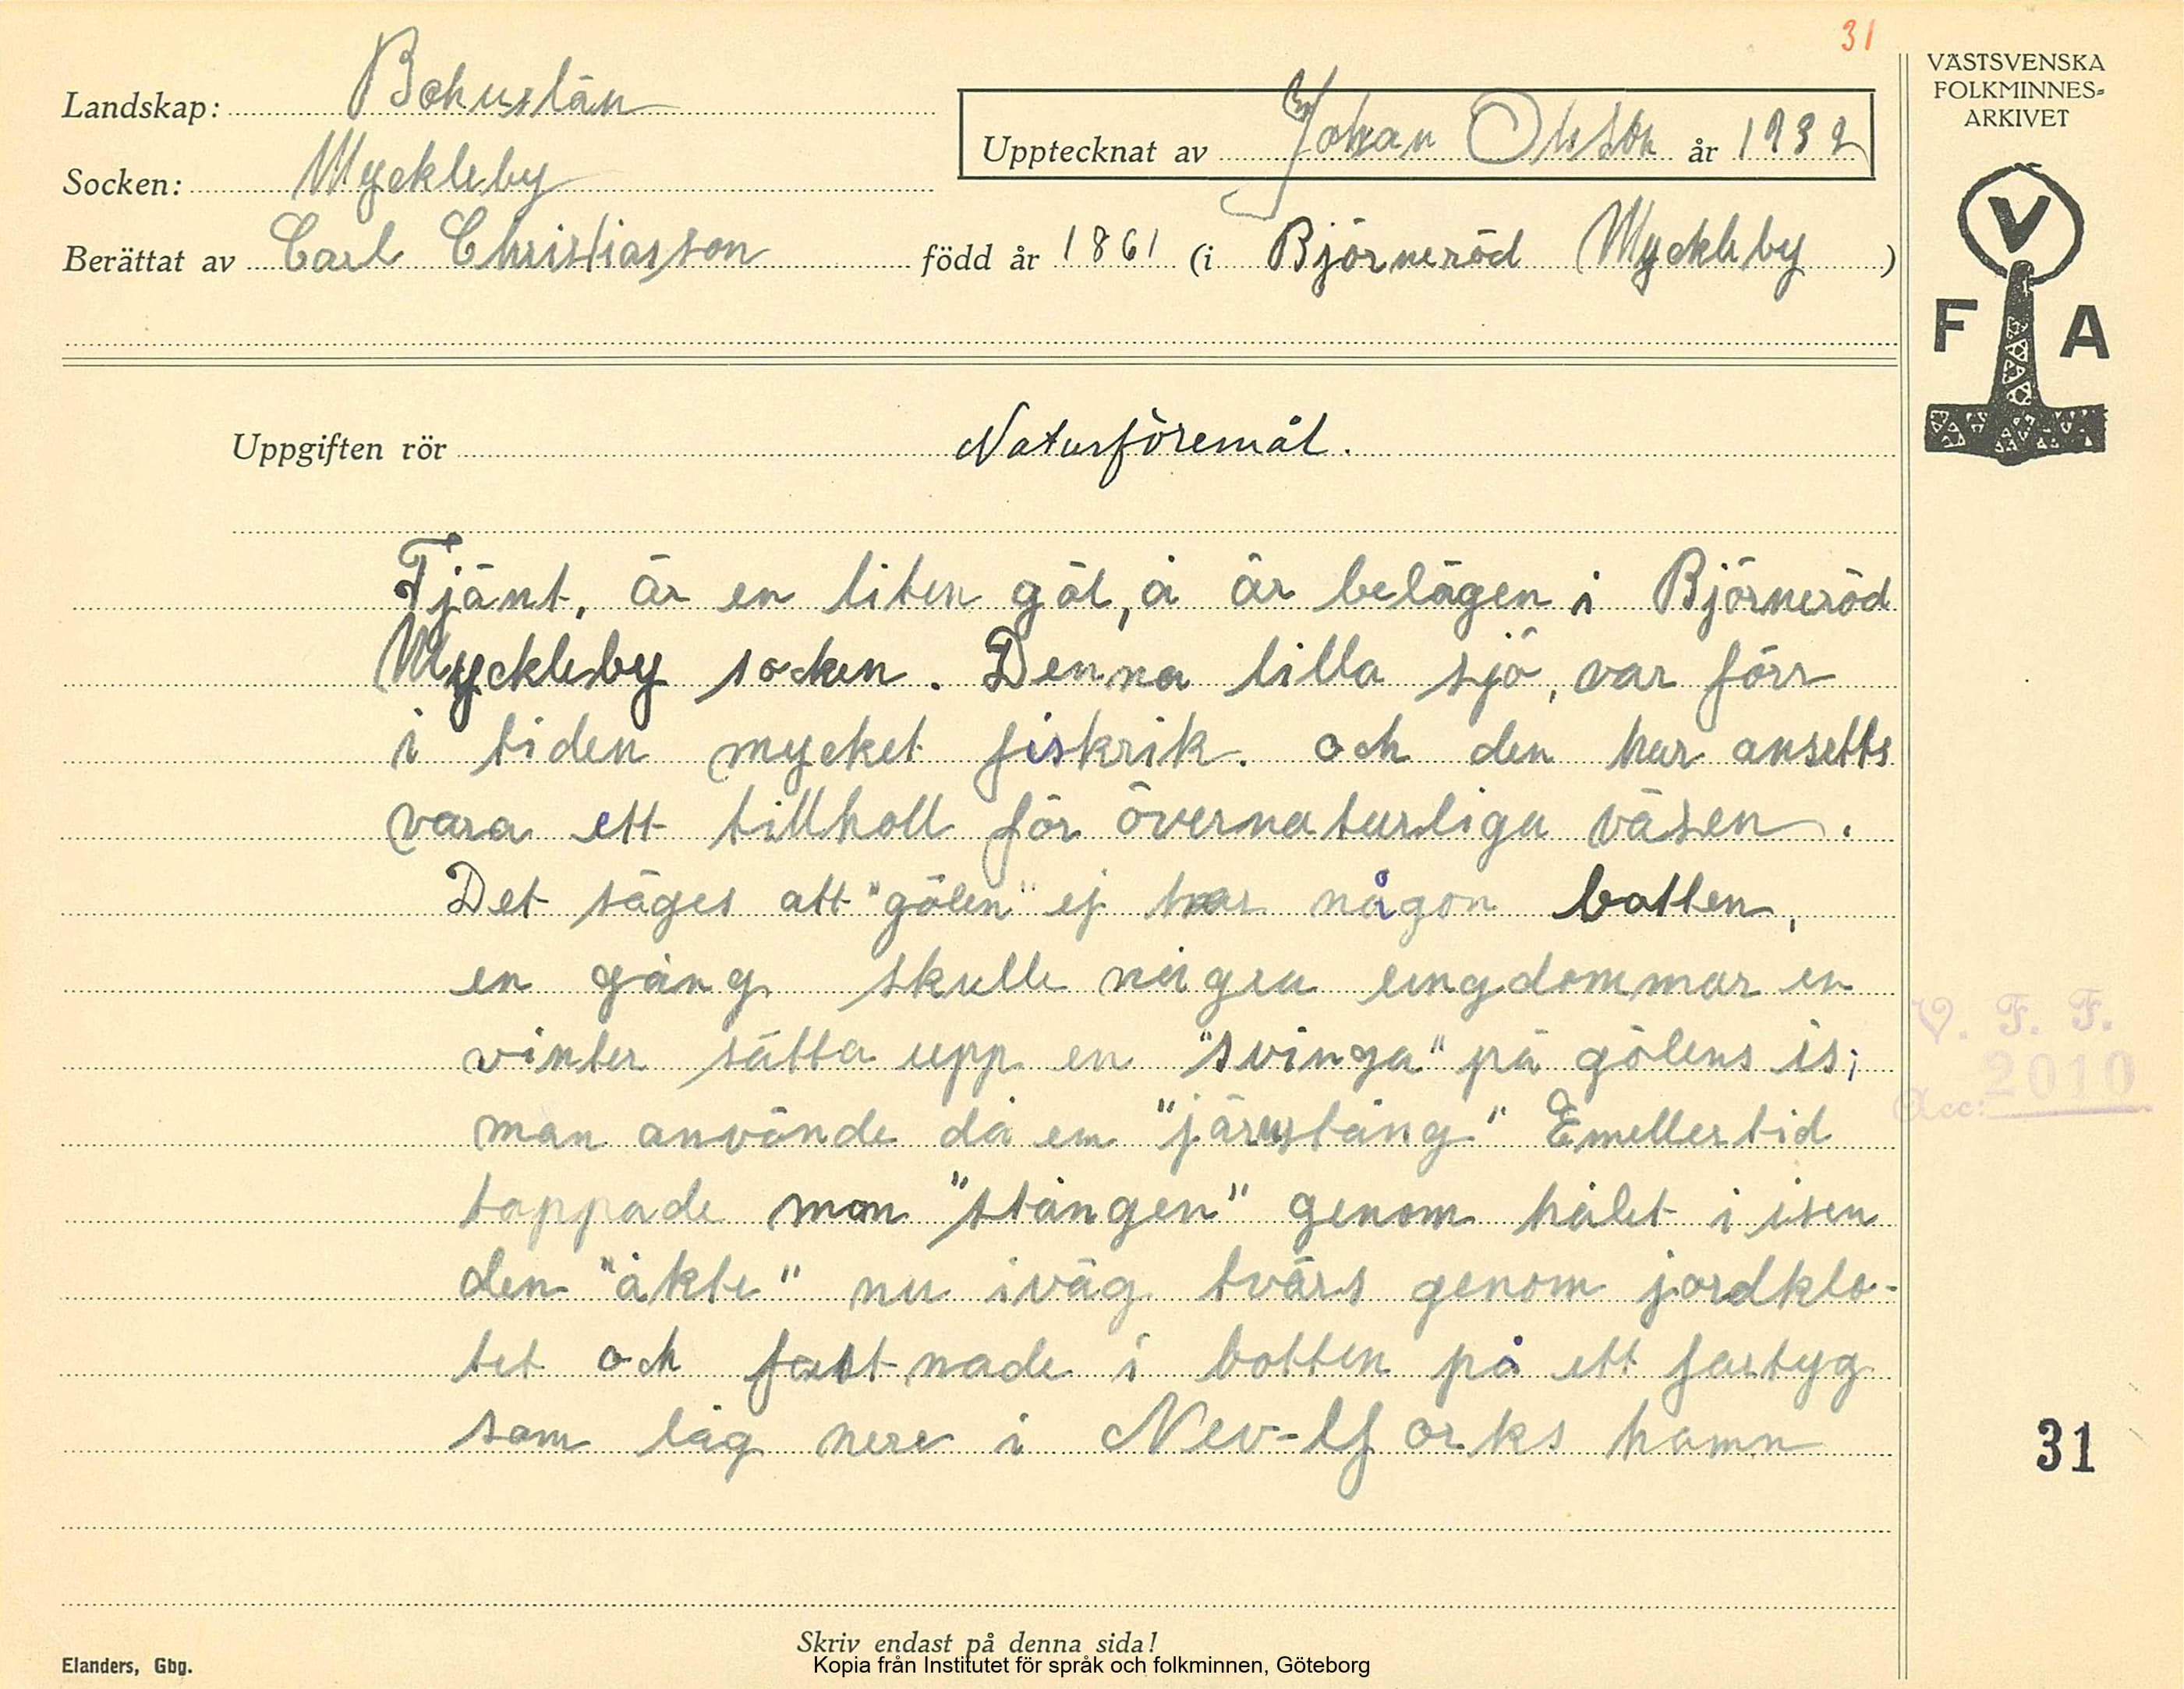 31
VÄSTSVENSKA
FOLKMINNES-
ARKIVET
Landskap: Bohuslän
Upptecknat av Johan Olsson år 1932
Socken: Myckleby
Berättat av Carl Christiasson född år 1861 (i Björneröd Myckleby )
V
F A
Uppgiften rör Naturföremål.
Tjänt, är en liten göl, å är belägen i Björneröd
Myckleby socken. Denna lilla sjö, var förr
i tiden mycket fiskrik. och den har ansetts
vara ett tillholl för övernaturliga väsen.
Det säges att "gölen" ej har någon botten,
en gång skulle några ungdommar en
vinter sätta upp en "svinga" på gölens is;
man använde då en "järnstång" Emellertid
tappade man "stången" genom hålet i isen
den "åkte" nu iväg tvärs genom jordklo-
tet och fastnade i botten på ett fartyg
som låg nere i Nev-Yorks hamn
V. F. F.
Acc: 2010
31
Skriv endast på denna sida!
Elanders, Gbg.
Kopia från Institutet för språk och folkminnen, Göteborg